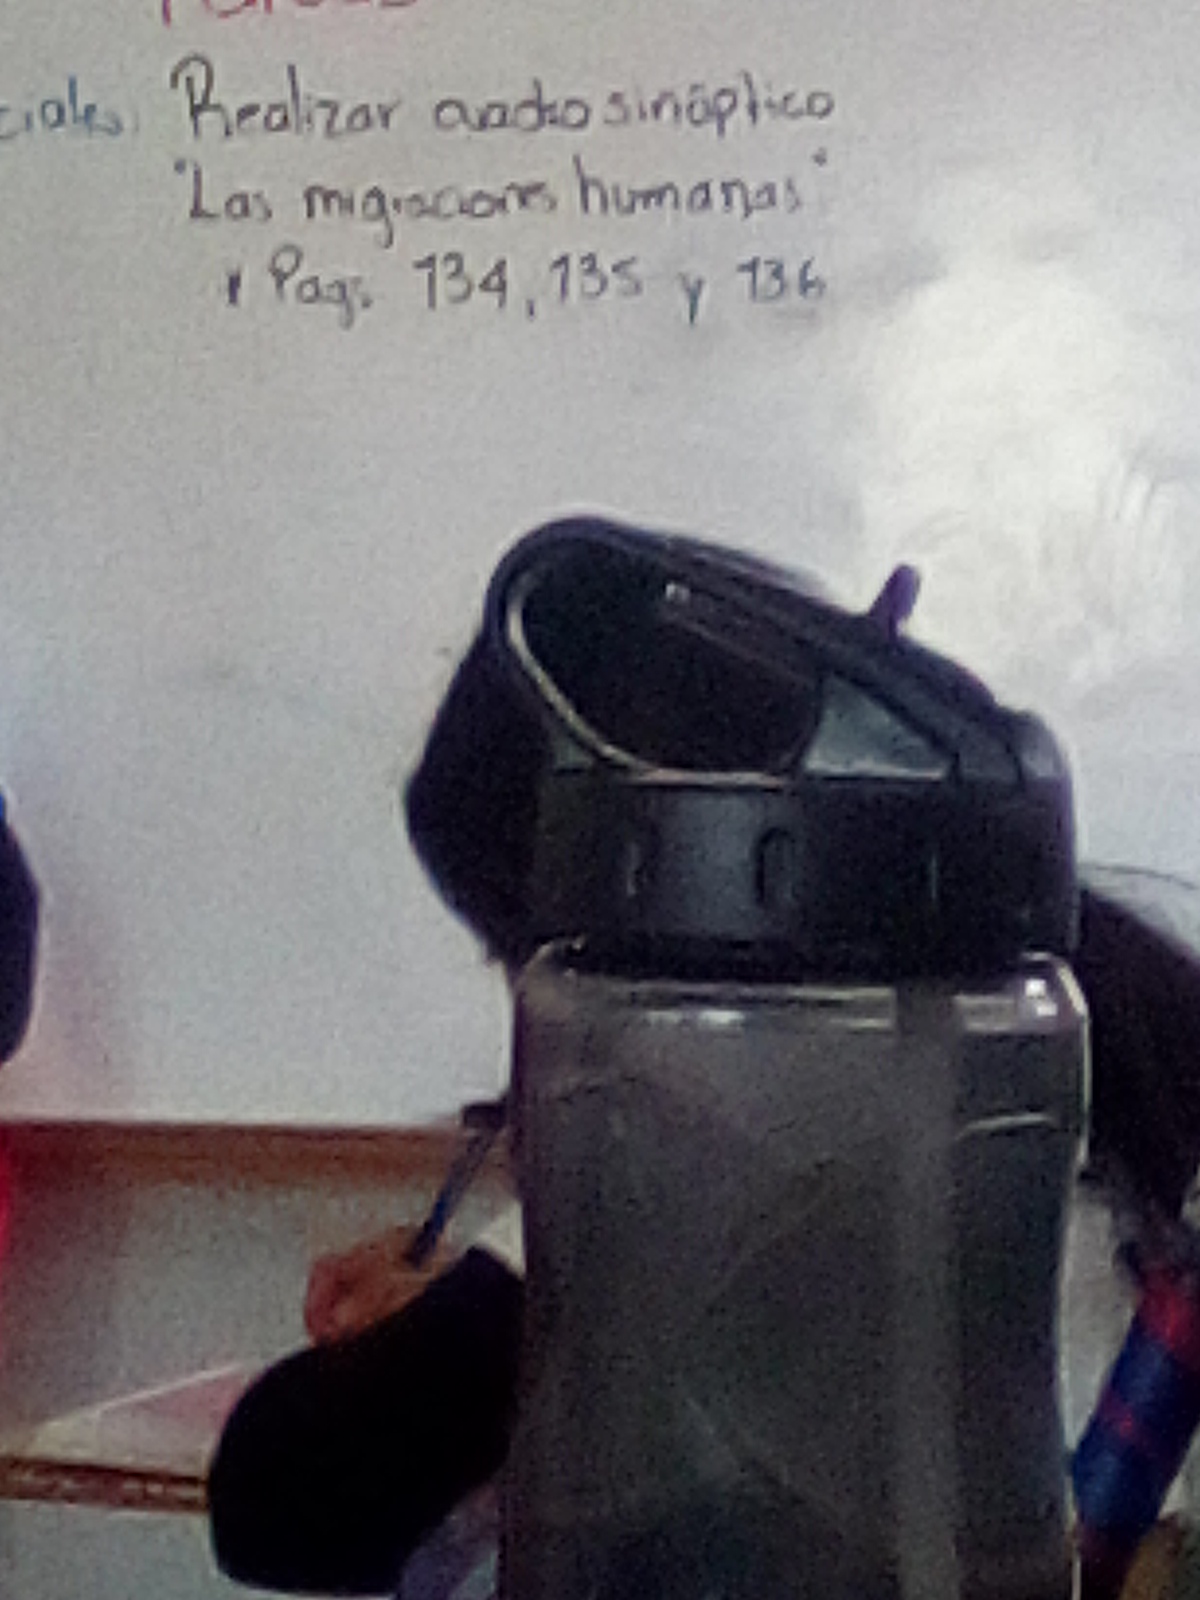 Realizar cuadro sinóptico
"Las migraciones humanas"
Pag: 134, 135 y 136